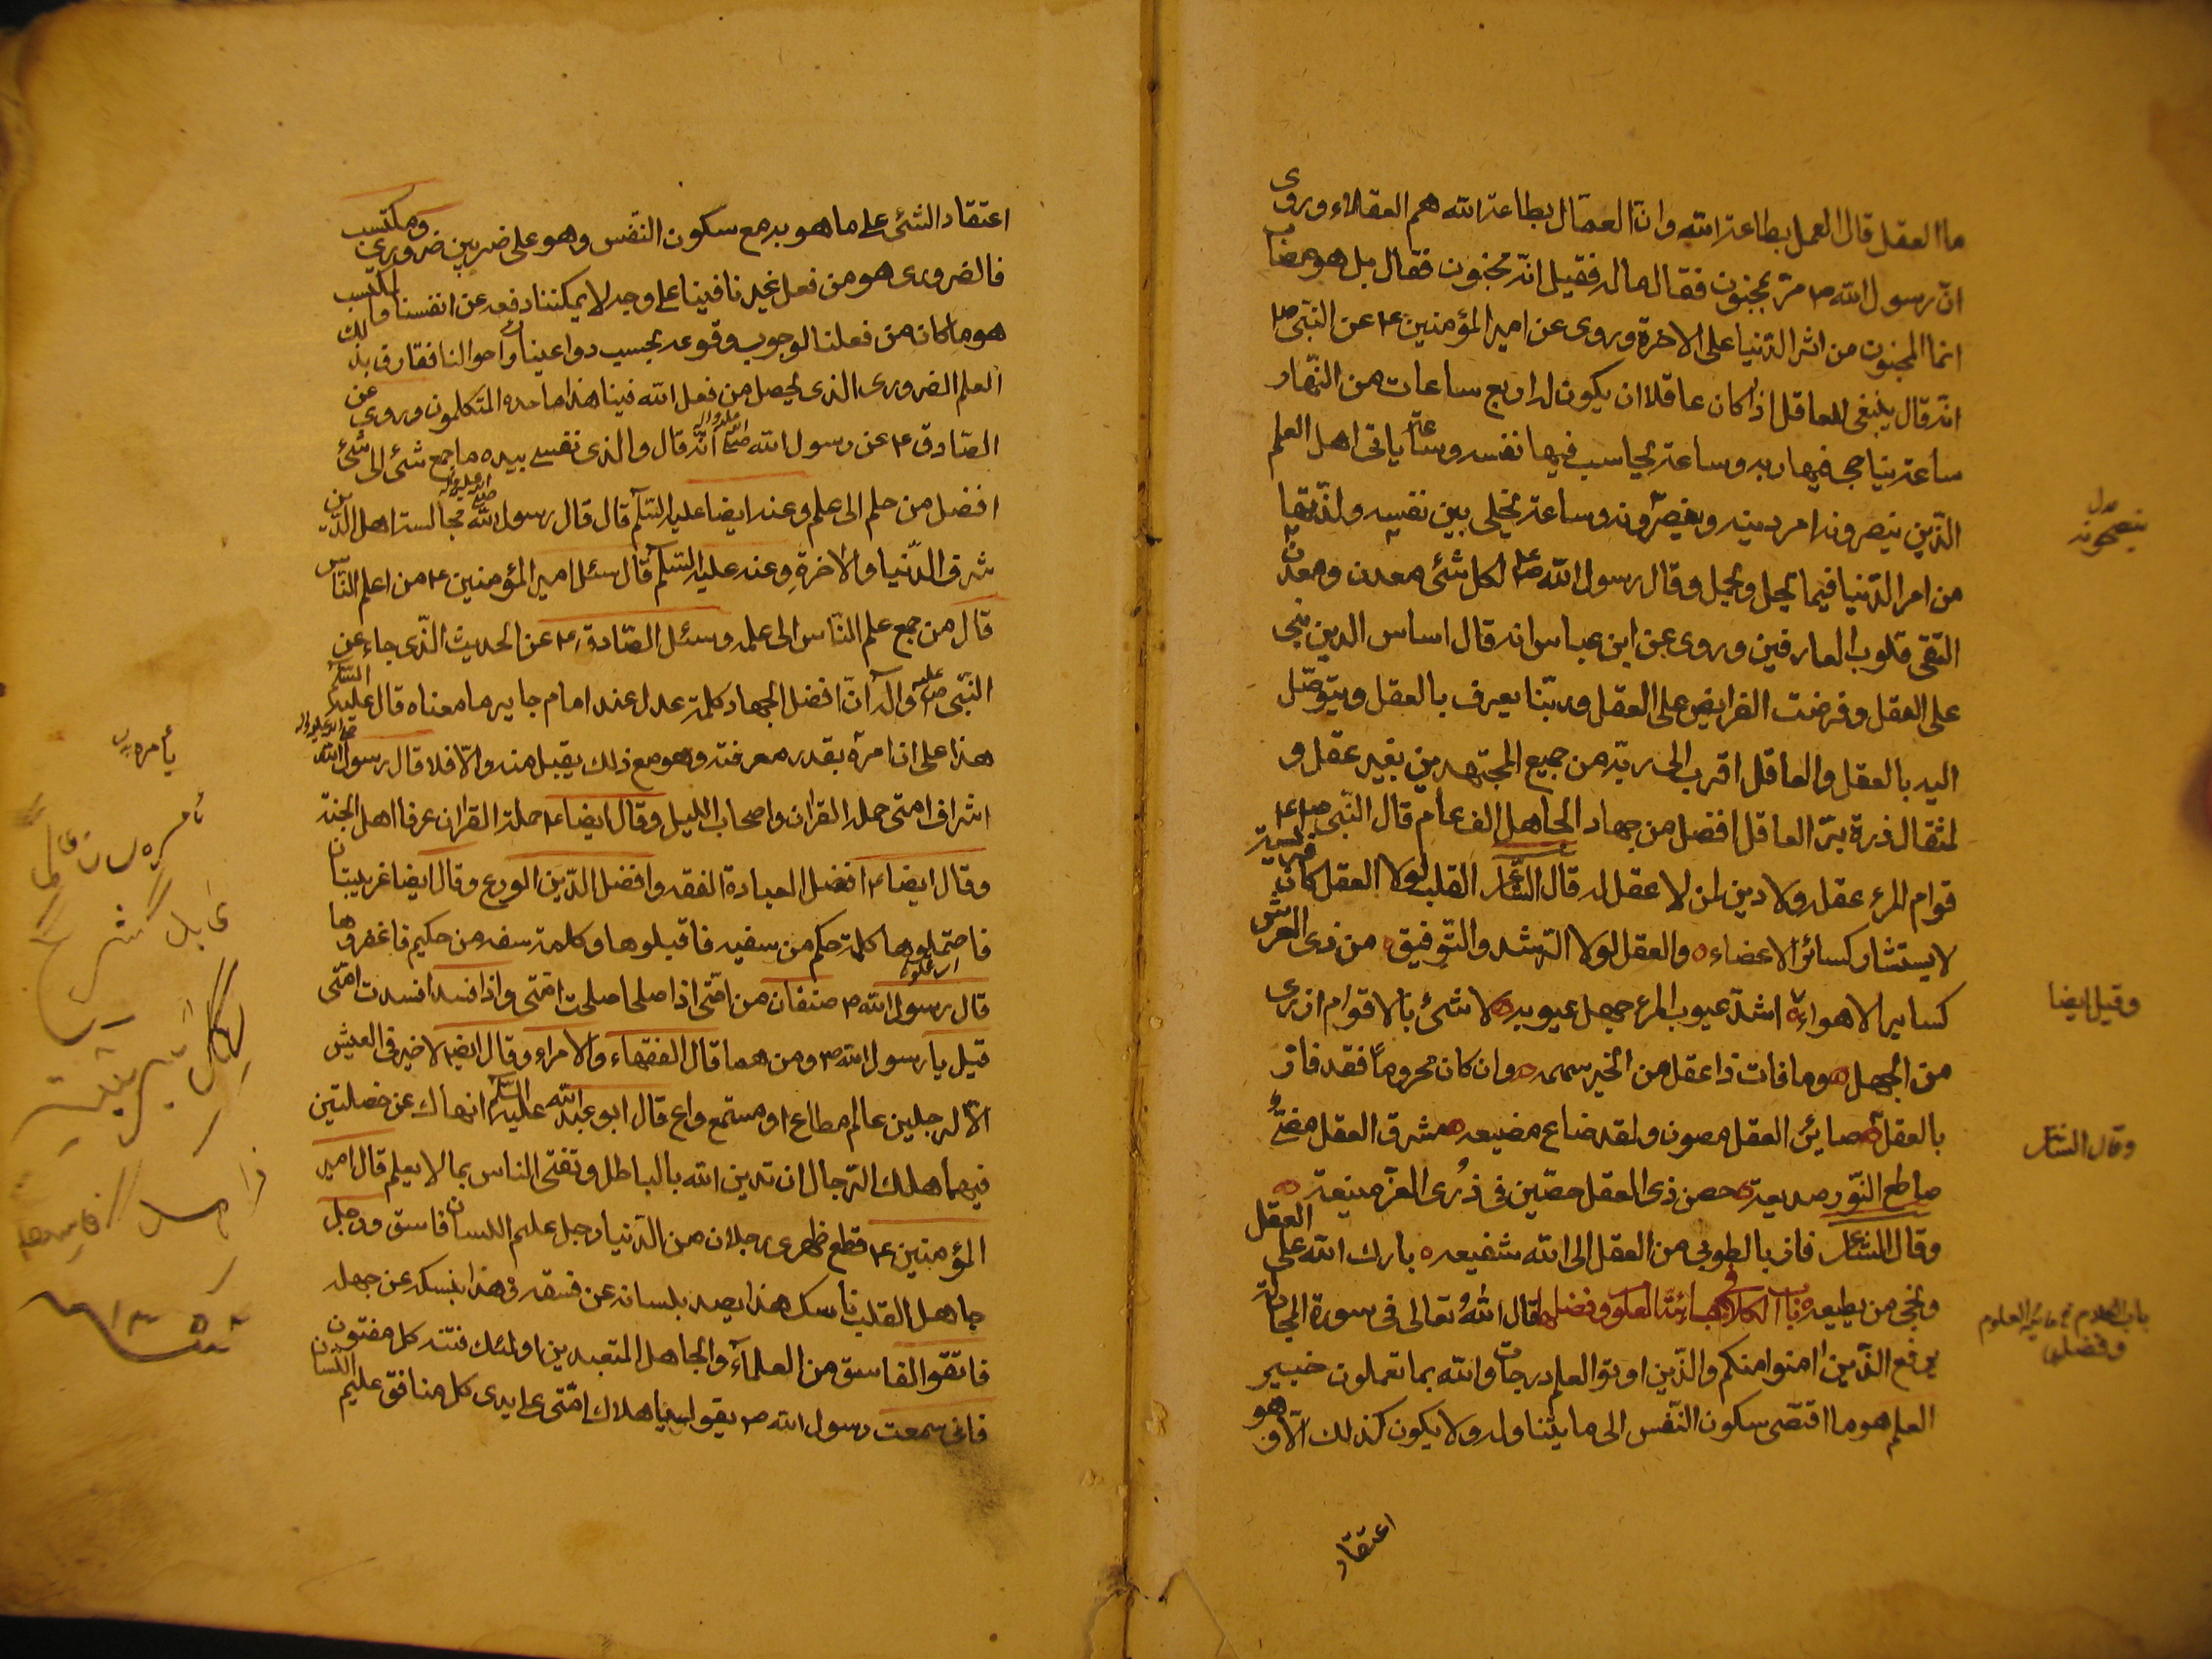 ما العقل قال العمل بطاعة الله وانّ العمّال بطاعة الله هم العقلاء وروى
انّ رسول الله ص مرّ بمجنون فقال ما له فقيل انّه مجنون فقال بل هو مصاب
انما المجنون من اثر الدّنيا على الاخرة وروى عن امير المؤمنين ع عن النّبى ص
انّه قال ينبغى للعاقل اذا كان عاقلا ان يكون له اربع ساعات من النّهار
ساعة يناجى فيها ربه وساعة يحاسب فيها نفسه وساعة ياتى اهل العلم
الّذين ينصرونه امر دينه ويبصّرونه وساعة يخلى بين نفسه ولذّتها
من امر الدّنيا فيما يحل ويجمل وقال رسول الله ص لكل شئ معدن ومعدن
التقى قلوب العارفين وروى عن ابن عباس انه قال اساس الدين بنى
على العقل وفرضت الفرايض على العقل وربّنا يعرف بالعقل ويتوصّل
اليه بالعقل والعاقل اقرب الى ربّه من جميع المجتهدين بغير عقل و
لمثقال ذرة من برّ العاقل افضل من جهاد الجاهل الف عام قال النّبى ص
قوام المرء عقله ولا دين لمن لا عقل له قال الشّاعر القلب لولا العقل كان
لا يستشار كسائر الاعضاء والعقل لولا الرّشد والتّوفيق من ذى العرش
كساير الاهواء اشدّ عيوب المرء جهل عيوبه لا شئ بالاقوام ازرى
من الجهل وما فات ذا عقل من الخير سهمه وان كان محروماً فقد فاز
بالعقل صاين العقل مصون ولقد ضاع مضيعه مشرق العقل مضئ
ساطع النّور صديعه حصن ذى العقل حصين فى ذُرى العز منيعه
وقال الشاعر فاز بالطوبى من العقل الى الله شفيعه بارك الله على العقل
ونجى من يطيعه باب الكلام فى مائيّة العلوم وفضلها قال اللهُ تعالى فى سورة المجادلة
يرفع الّذين امنوا منكم والّذين اوتوا العلم درجات والله بما تعملون خبير
العلم هو ما اقتضى سكون النّفس الى ما يتناوله ولا يكون كذلك الّا وهو
اعتقاد
ينصحونه بدل
وقيل ايضا
وقال الشاعر
باب الكلام فى مائية العلوم
وفضلها
اعتقاد الشئ على ما هو به مع سكون النفس وهو على ضربين ضرورى ومكتسب
فالضرورى هو من فعل غيرنا فينا على وجه لا يمكننا دفعه عن انفسنا والمكتسب
هو ما كان من فعلنا لوجوب وقوعه بحسب دواعينا واحوالنا ففارق بذلك
العلم الضرورى الذى يحصل من فعل الله فينا هذا ما حده المتكلمون وروى عن
الصّادق ع عن رسول الله صلى الله عليه واله انّه قال والذى نفسى بيده ما جمع شئ الى شئ
افضل من حلم الى علم وعنه ايضا عليه السّلم قال قال رسول الله صلى الله عليه واله مجالسة اهل الدّين
شرف الدّنيا والاخرةِ وعنه عليه السّلم قال سئل امير المؤمنين ع من اعلم النّاس
قال من جمع علم النّاس الى علمه وسئل الصّادق ع عن الحديث الّذى جاء عن
النّبى صلى الله عليه وآله انّ افضل الجهاد كلمة عدل عند امام جاير ما معناه قال عليه السّلم
هذا على ان امره بقدر معرفته وهو مع ذلك يقبل منه والّا فلا قال رسول الله صلى الله عليه واله
اشراف امتى حملة القران واصحاب الليل وقال ايضا ع حملة القران عرفا اهل الجنّة
وقال ايضا ع افضل العبادة الفقه وافضل الدّين الورع وقال ايضا غريبتان
فاحتملوها كلمة حكم من سفيه فاقبلوها وكلمة سفه من حكيم فاغفروها
قال رسول الله ص صنفان من امّتى اذا صلحا صلحت امّتى واذا فسدا فسدت امّتى
قيل يا رسول الله ص ومن هما قال الفقهاء والامراء وقال ايضا لا خير فى العيش
الّا لرجلين عالم مطاع او مستمع واع قال ابو عبد الله عليه السّلم انهاك عن خصلتين
فيهما هلك الرّجال ان تدين الله بالباطل وتفتى الناس بما لا يعلم قال امير
المؤمنين ع قطع ظهرى رجلان من الدّنيا رجل عليم اللسان فاسق ورجل
جاهل القلب ناسك هذا يصد بلسانه عن فسقه وهذا بنسكه عن جهله
فاتقوا الفاسق من العلمآء والجاهل المتعبدين اولئك فتنه كل مفتون
فانى سمعت رسول الله ص يقول يا هلاك امّتى على ايدى كل منافق عليم اللسان